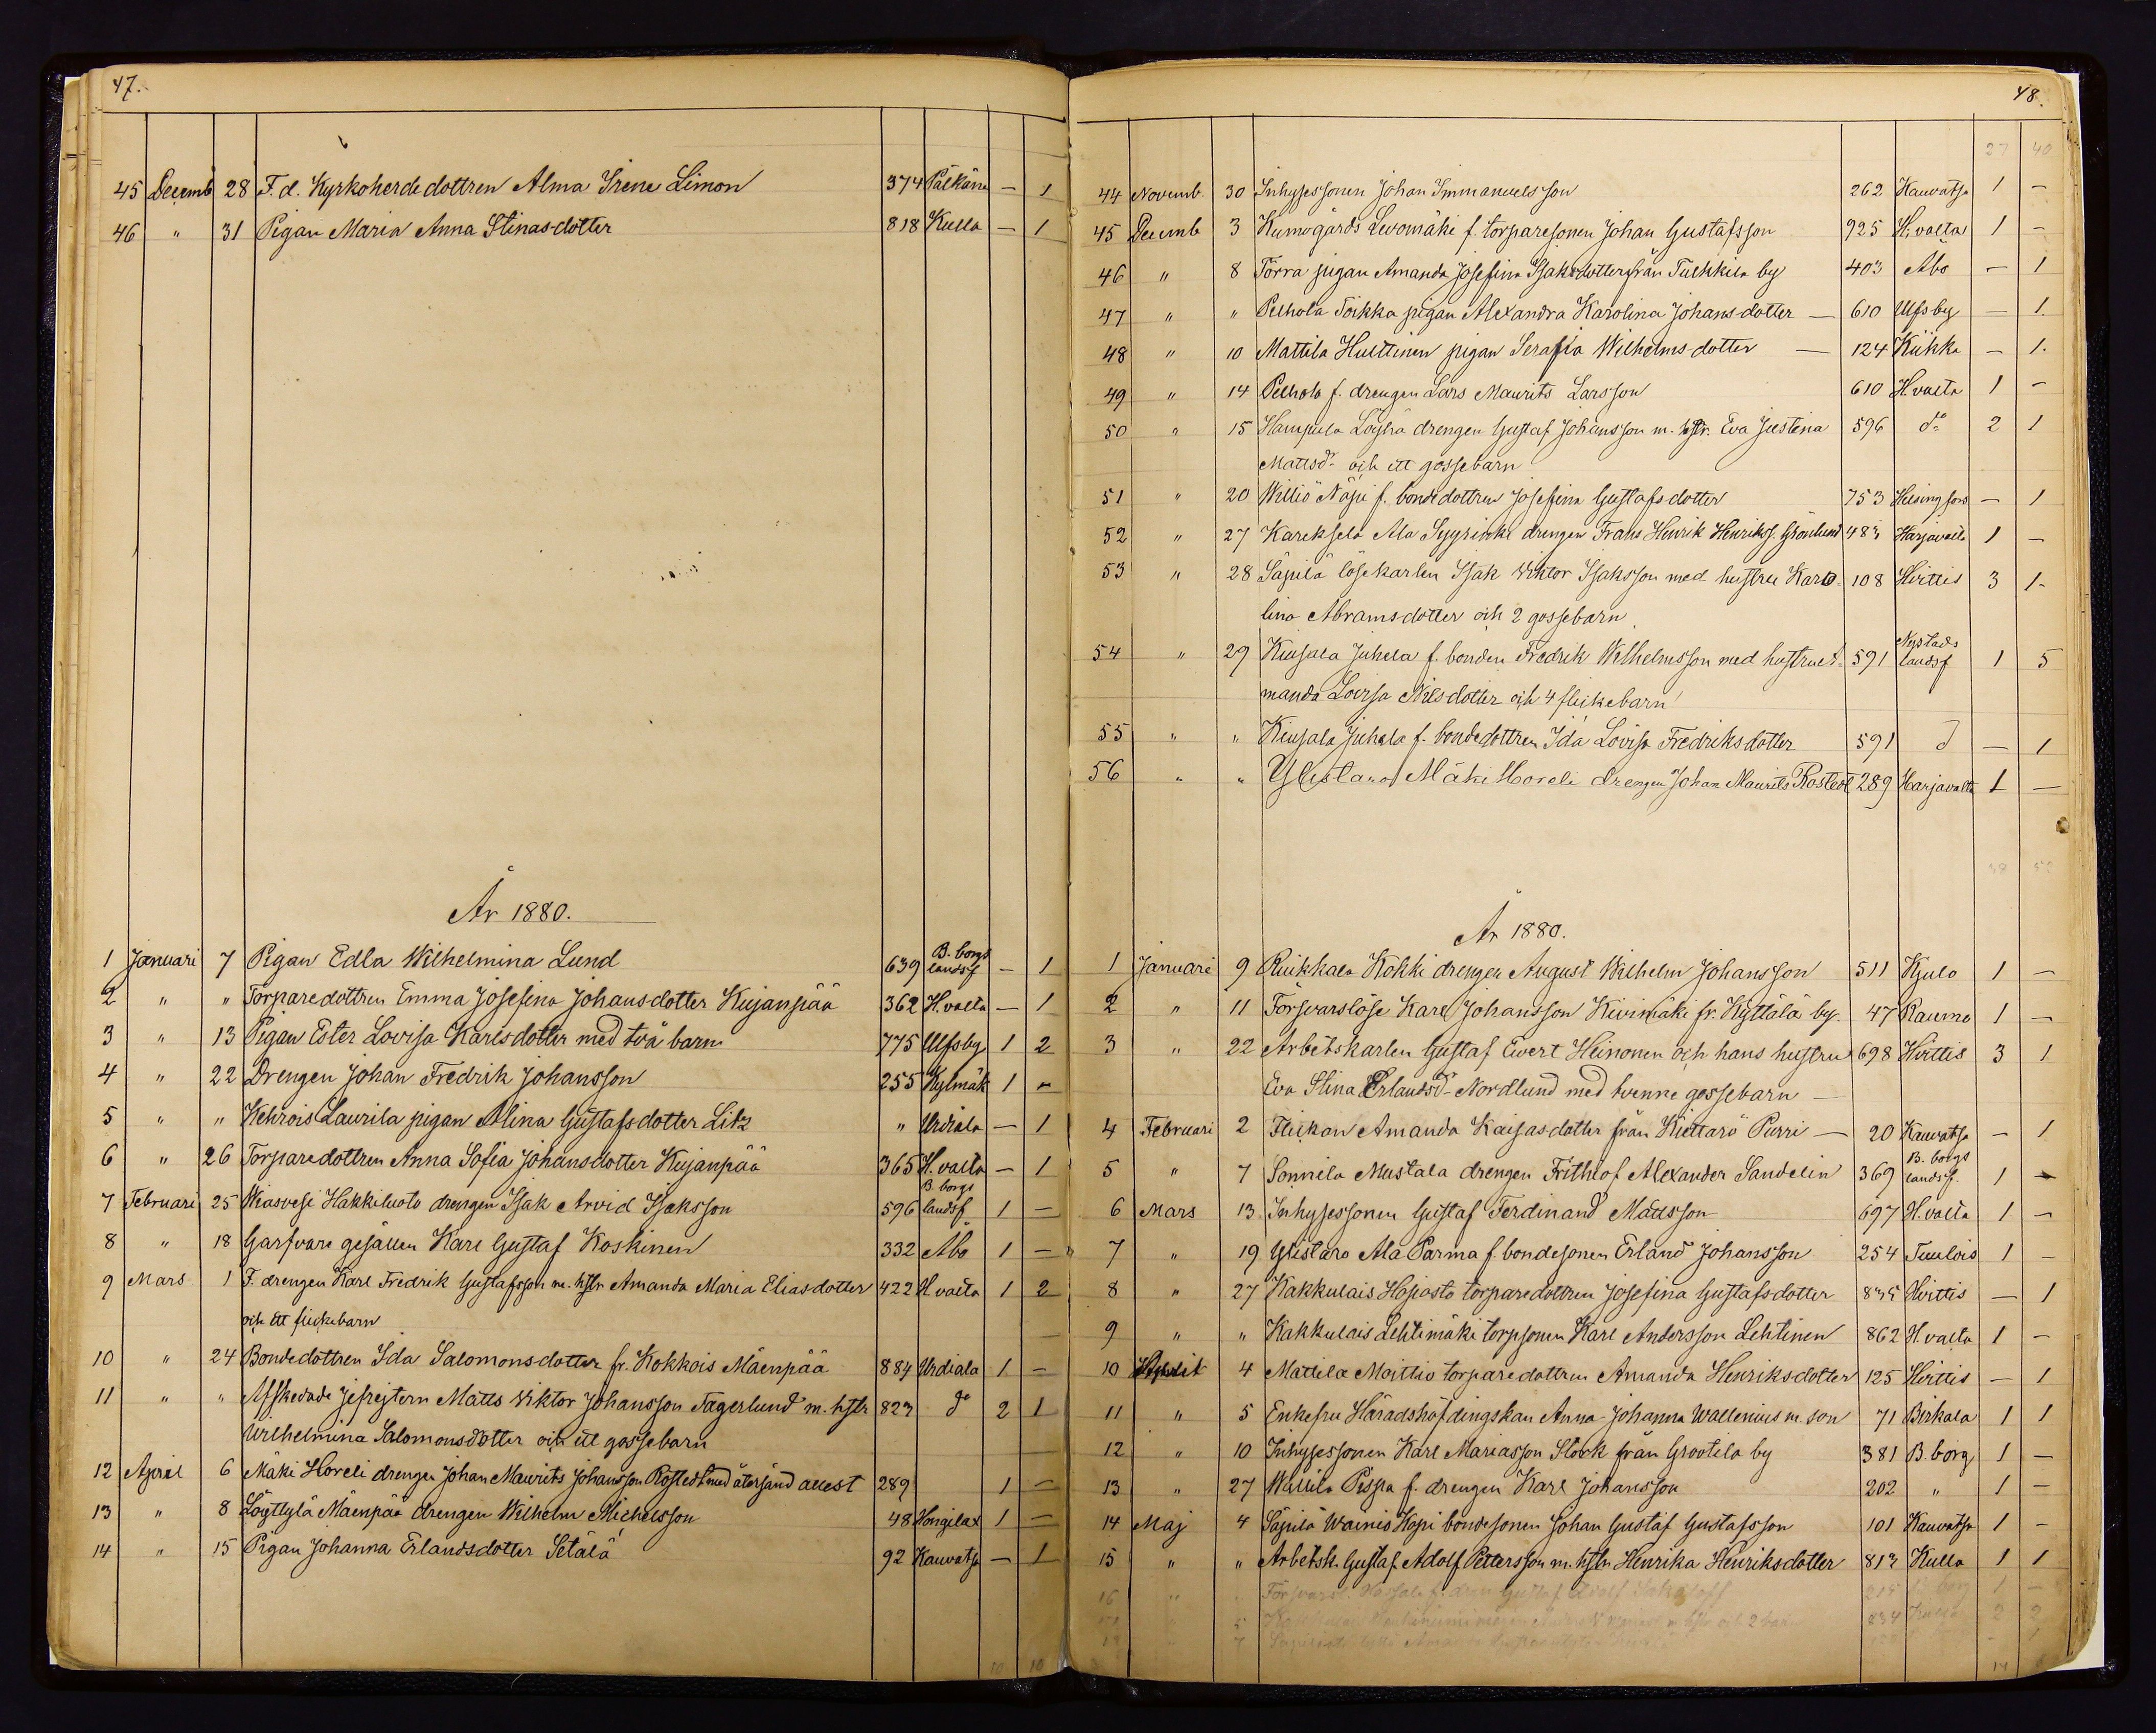 47.
45 Decemb 28 F. d. Kyrkoherde dottren Alma Irene Limon 374 Pälkäne — 1
46 " 31 Pigan Maria Anna Stinasdotter 818 Kulla — 1
År 1880.
1 Januari 7 Pigan Edla Wilhelmina Lund 639 B. borgs landsf — 1
2 " " Torparedottren Emma Josefina Johansdotter Kujanpää 362 H. valta — 1
3 " 13 Pigan Ester Lovisa Karlsdotter med två barn 775 Ulfsby 1 2
4 " 22 Drengen Johan Fredrik Johansson 255 Kylmäk 1 -
5 " " Kehrois Laurila pigan Alina Gustafsdotter Litz " Urdiala — 1
6 " 26 Torparedottren Anna Sofia Johansdotter Kujanpää 365 H. valta — 1
7 Februari 25 Wiasvesi Hakkiluoto drengen Isak Arvid Isaksson 596 B. borgs landsf 1 —
8 " 18 Garfvare gesällen Karl Gustaf Koskinen 332 Åbo 1 —
9 Mars 1 F. drengen Karl Fredrik Gustafsson m. hstr Amanda Maria Eliasdotter 422 H. valta 1 2
och ett flickebarn
10 " 24 Bondedottren Ida Salomonsdotter fr. Kokkois Mäenpää 884 Urdiala 1 —
11 " " Afskedade Jefrejtern Matts Viktor Johansson Fagerlund m. hstr 823 do 2 1
Wilhelmina Salomonsdotter och ett gossebarn
12 April 6 Mäki Horeli drengen Johan Maurits Johansson Rostedt med återsänd attest 289 1 —
13 " 8 Löyttylä Mäenpää drengen Wilhelm Michelsson 48 Hongilax 1 —
14 " 15 Pigan Johanna Erlandsdotter Setälä 92 Kauvatsa — 1
10 10
48.
27 40
44 Novemb. 30 Inhysessonen Johan Immanuelsson 262 Kauvatsa 1 —
45 Decemb 3 Kumogårds Levomäki f. torparesonen Johan Gustafsson 925 H. valta 1 -
46 " 8 Törra pigan Amanda Josefina Isaksdotter från Tulkkila by 403 Åbo — 1
47 " " Pelhola Toikka pigan Alexandra Karolina Johansdotter — 610 Ulfsby — 1.
48 " 10 Mattila Hulttinen pigan Serafia Wilhelmsdotter — 124 Kiikka — 1.
49 " 14 Pelhola f. drengen Lars Maurits Larsson 610 H. valta 1 -
50 " 15 Hampula Löyhä drengen Gustaf Johansson m. hstr. Eva Justina 596 do 2 1
Mattsdr och ett gossebarn
51 " 20 Williö Näpi f. bondedottren Josefina Gustafsdotter 753 Helsingfors — 1
52 " 27 Kareksela Ala Syyrinki drengen Frans Henrik Henriks. Grönlund Harjavalta 1 —
53 " 28 Säpilä lösekarlen Isak Viktor Isaksson med hustru Karo- 108 Hvittis 3 1-
lina Abramsdotter och 2 gossebarn
54 " 29 Kiusala Juhela f. bonden Fredrik Wilhelmsson med hustru A- 591 Nystads landsf 1 5
manda Lovisa Nilsdotter och 4 flickebarn
55 " " Kiusala Juhela f. bondedottren Ida Lovisa Fredriksdotter 591 d — 1
56 " " Ylistaro Mäki Horeli drengen Johan Maurits Rostedt 289 Harjavalta 1 —
38 50
År 1880.
1 Januari 9 Ruikkala Kokki drengen August Wilhelm Johansson 511 Kjulo 1 —
2 " 11 Försvarslöse Karl Johansson Kivimäki fr. Kyttälä by. 47 Raumo 1 —
3 " 22 Arbetskarlen Gustaf Evert Heinonen och hans hustru 698 Hvittis 3 1
Eva Stina Erlandsdr Nordlund med tvenne gossebarn —
4 Februari 2 Flickan Amanda Kaisasdotter från Kiettarö Purri — 20 Kauvatsa — 1
5 " 7 Sonnila Mustala drengen Frithiof Alexander Sandelin 369 B. borgs landsf. 1 —
6 Mars 13 Inhysessonen Gustaf Ferdinand Mattsson 697 H. valta 1 —
7 " 19 Ylistaro Ala Parma f. bondesonen Erland Johansson 254 Tuulois 1 —
8 " 27 Kakkulais Hojosta torparedottren Josefina Gustafsdotter 835 Hvittis — 1
9 " " Kakkulais Lehtimäki torpsonen Karl Andersson Lehtinen 862 H. valta 1 —
10 April 4 Mattila Maittio torparedottren Amanda Henriksdotter 125 Hvittis — 1
11 " 5 Enkefru Häradshöfdingskan Anna Johanna Wallenius m. son 71 Birkala 1 1
12 " 10 Inhysessonen Karl Mariasson Stork från Grootila by 381 B. borg 1 —
13 " 27 Wallila Pispa f. drengen Karl Johansson 202 " 1 —
14 Maj 4 Säpilä Wainio Hopi bondesonen Johan Gustaf Gustafsson 101 Kauvatsa 1 -
15 " " Arbetsk. Gustaf Adolf Pettersson m. hstr Henrika Henriksdotter 813 Kulla 1 1
16 " Gustaf Adolf 1 —
5 och 2 barn 834 Kulla 2 2
7
14